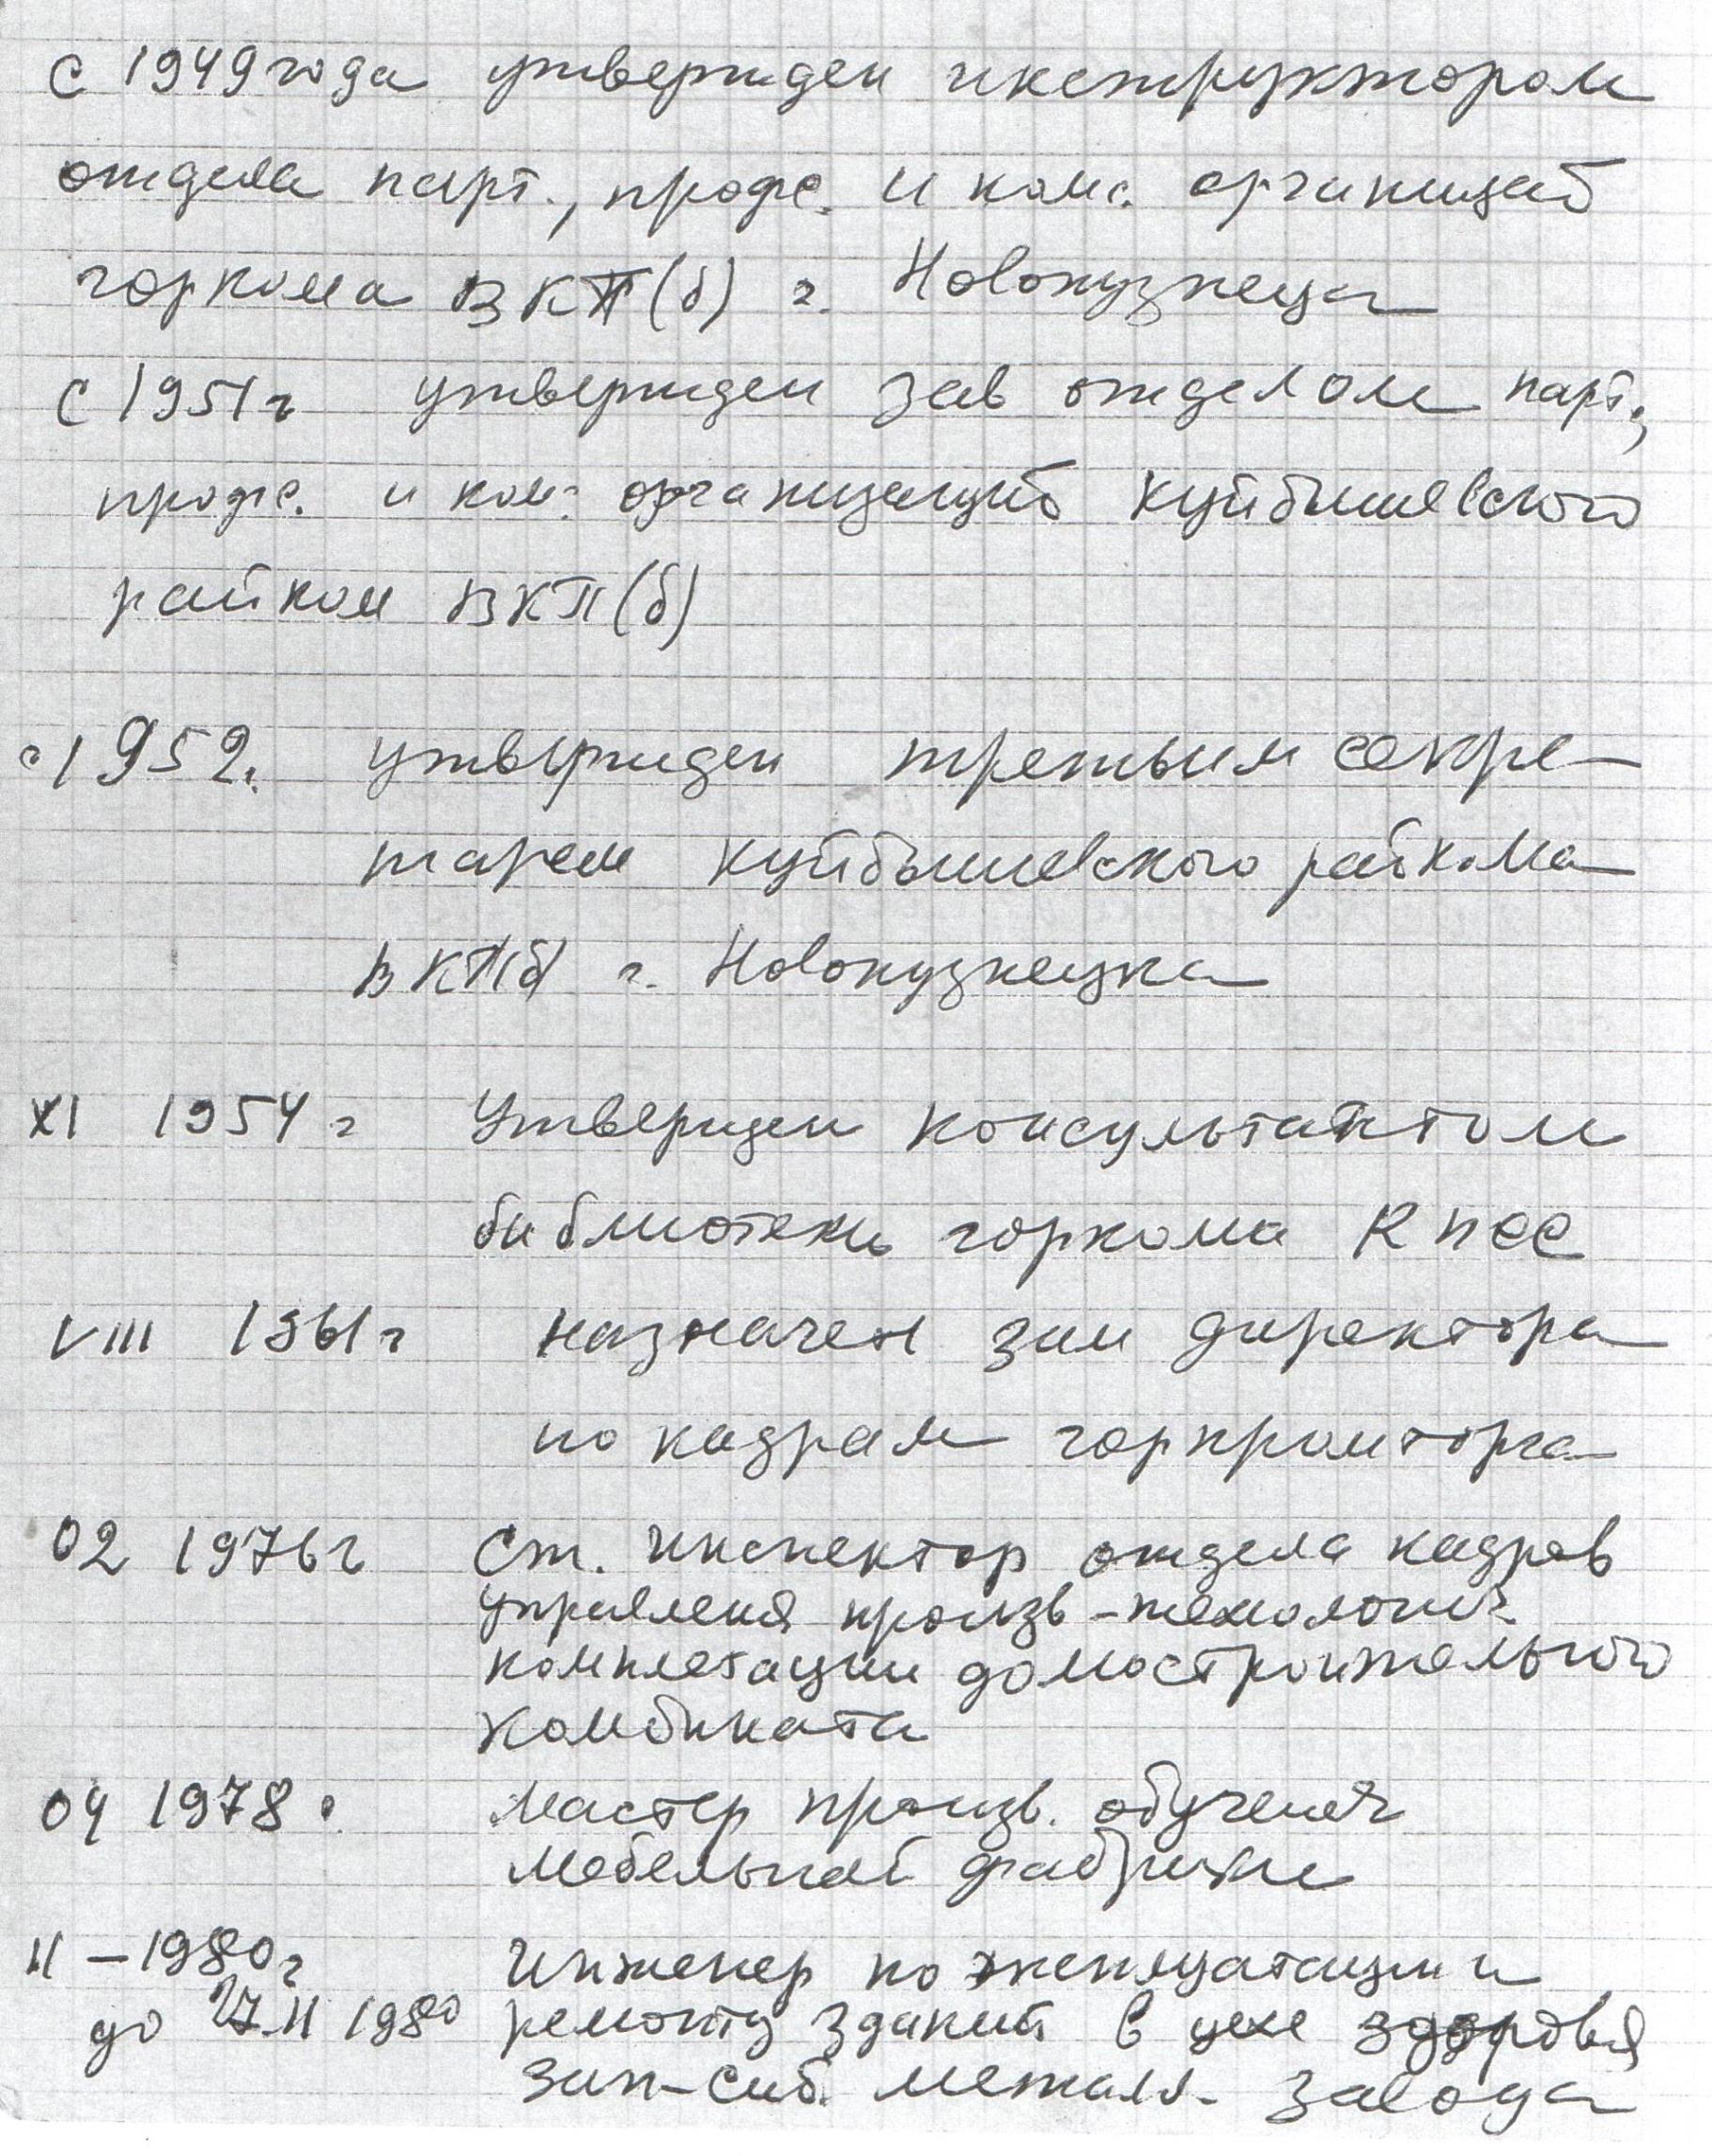 с 1949 года утвержден инструктором
отдела парт., профс. и комс. организаций
горкома ВКП(б) г. Новокузнецка
с 1951 г утвержден зав отделом парт.,
профс. и ком. организаций Куйбышевского
райком ВКП(б)
с 1952 г. утвержден третьим секре-
тарем Куйбышевского райкома
ВКПб г. Новокузнецка
XI 1954 г Утвержден консультантом
библиотеки горкома КПСС
VIII 1961 г назначен зам директора
по кадрам горпромторга
02 1976 г Ст. инспектор отдела кадров
управления произв-технологич.
комплектации домостроительного
комбината
04 1978 г. Мастер произв. обучения
мебельной фабрики
II – 1980 г Инженер по эксплуатации и
до 27.II 1980 ремонту зданий в цехе здоровья
Зап-Сиб. металл. завода